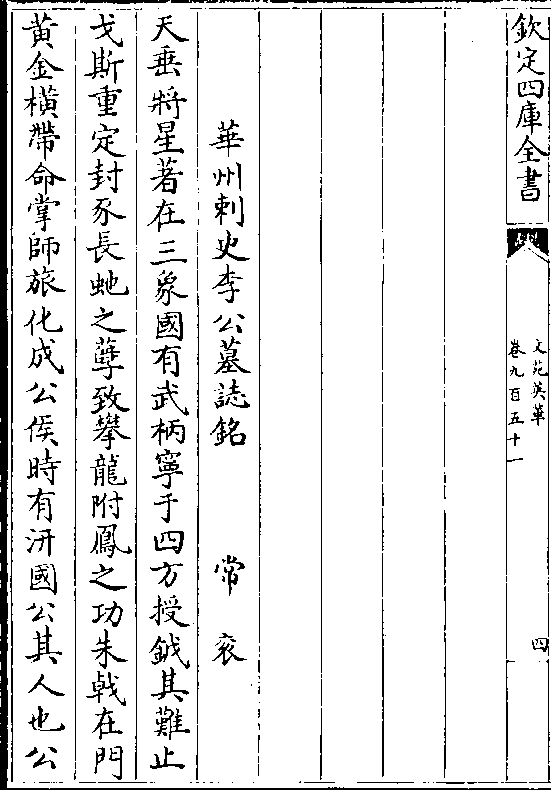 欽定四庫全書
文苑英華
卷九百五十一
四
華州刺史李公墓誌銘 常衮
天垂將星著在三象國有武柄寧于四方授鉞其難止
戈斯重定封豕長虵之孽致攀龍附鳳之功朱戟在門
黃金橫帶命掌師旅化成公侯時有汧國公其人也公